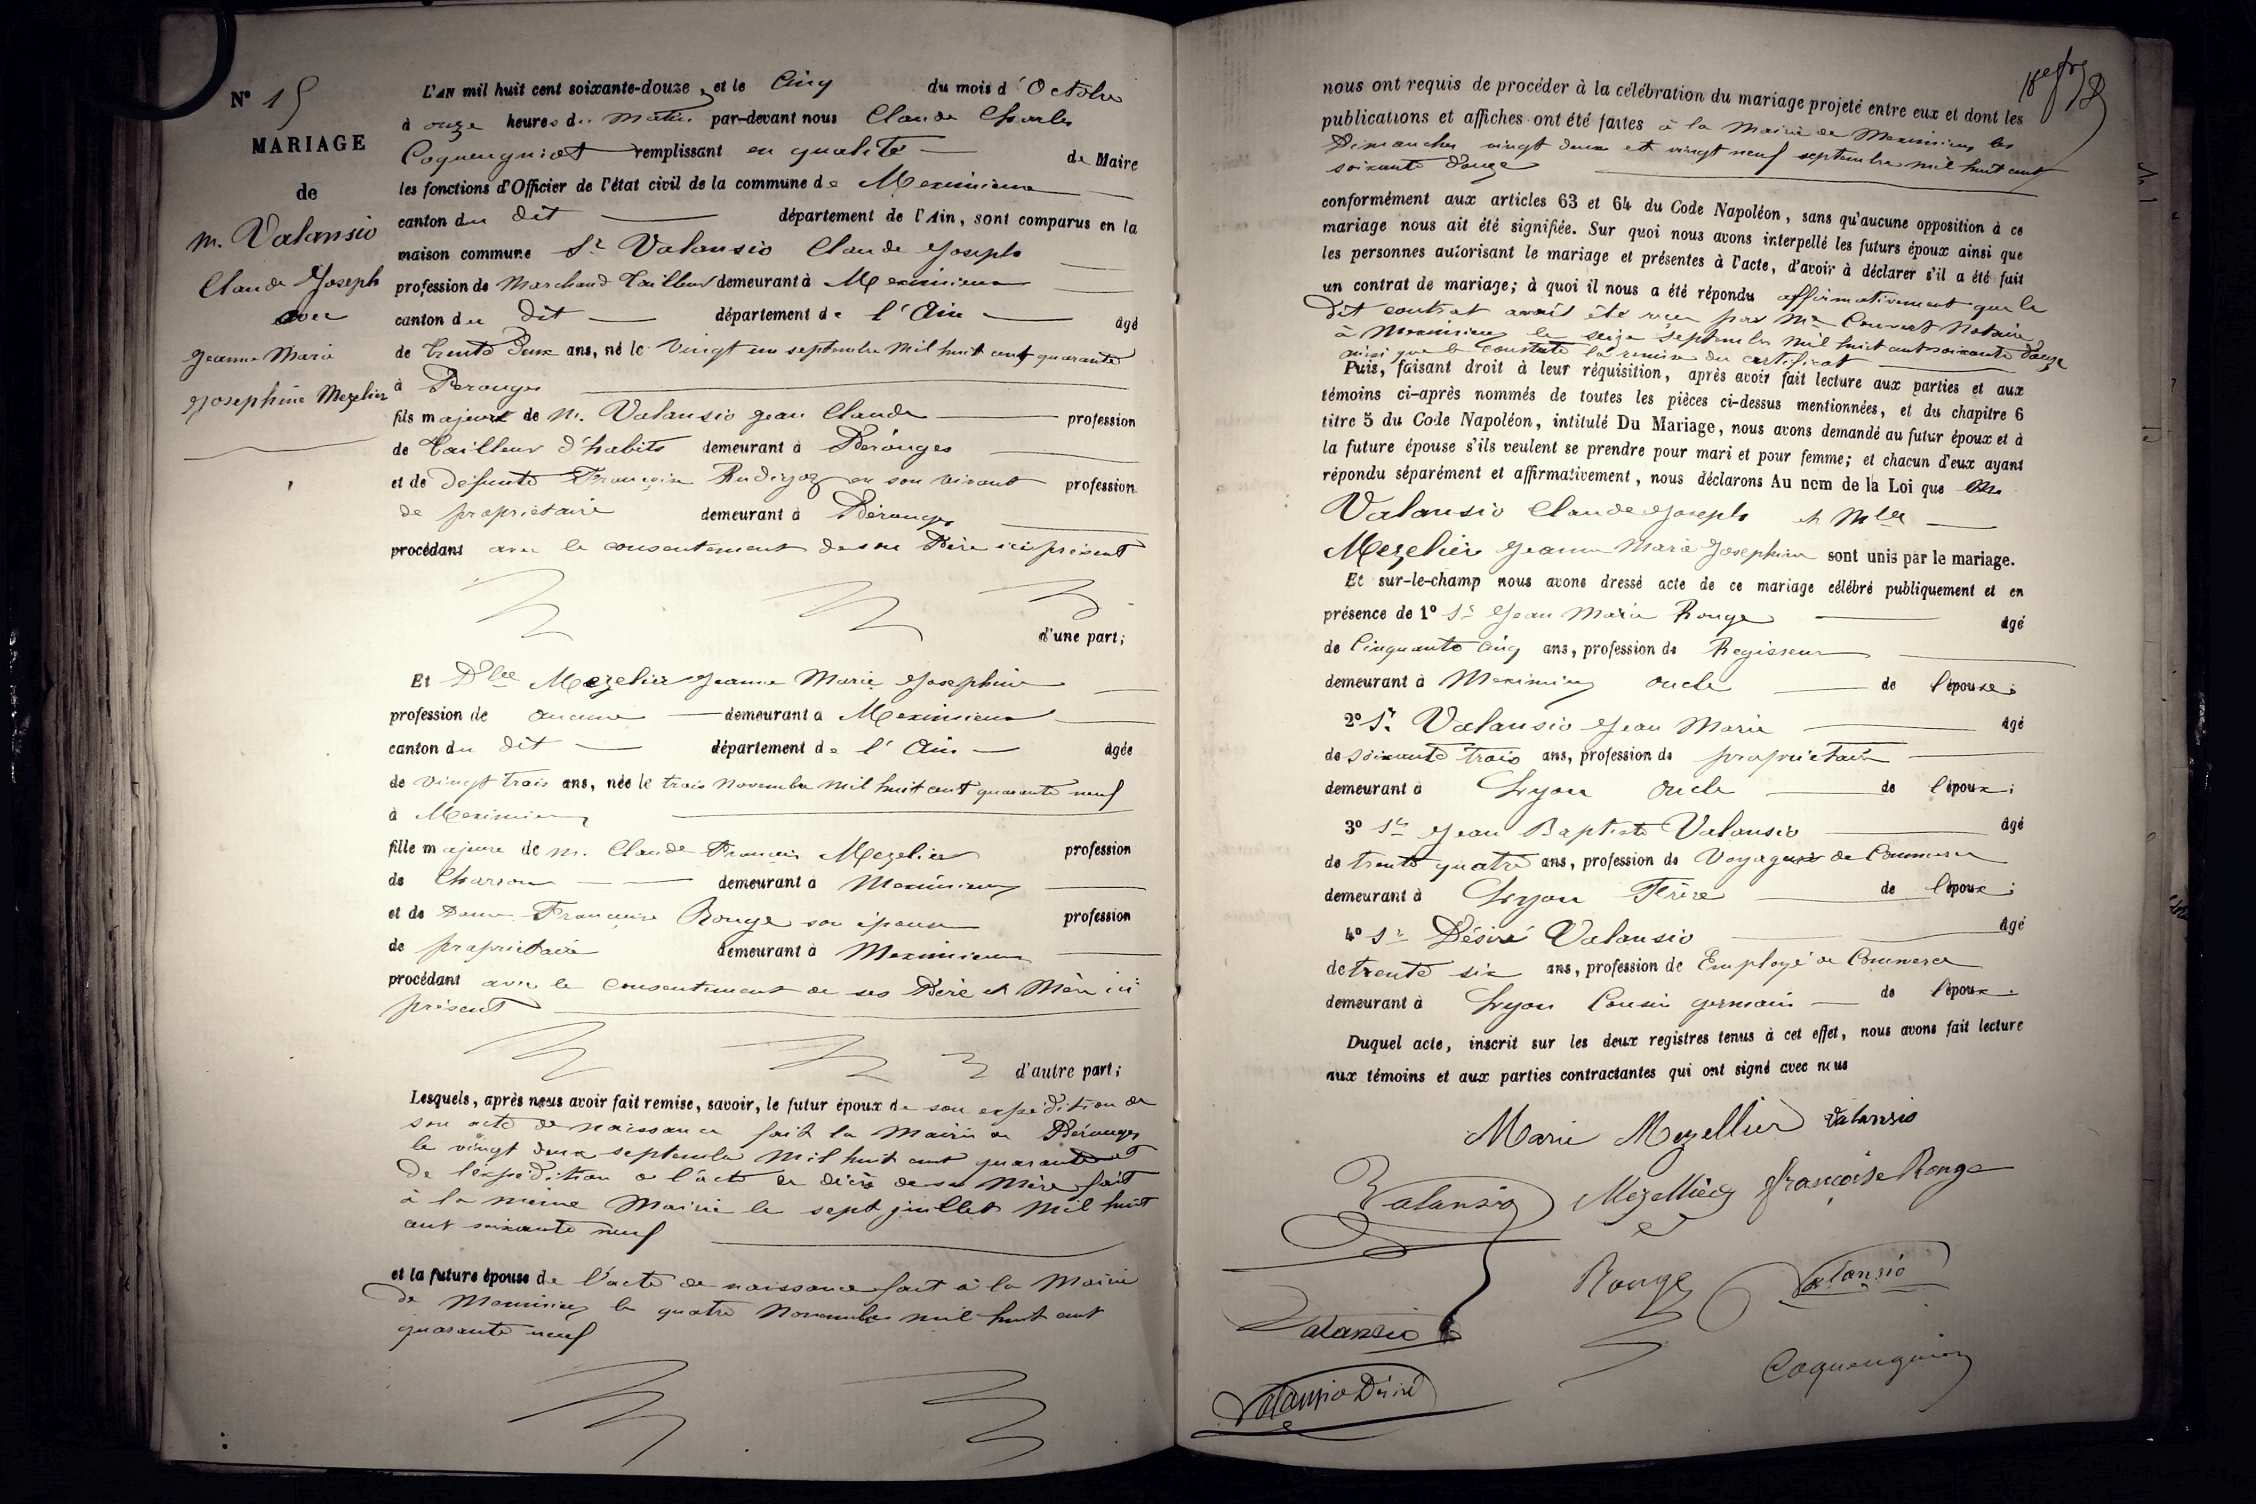 N° 15
MARIAGE
de
M. Valansio
Claude Joseph
avec
Jeanne Marie
Josephine Mezelier
L'AN mil huit cent soixante-douze et le Cinq du mois d'Octobre
à onze heures du matin par-devant nous Claude Charles
Coquengniot remplissant en qualité de Maire
les fonctions d'Officier de l'état civil de la commune de Meximieux
canton du dit département de l'Ain, sont comparus en la
maison commune Sr Valansio Claude Joseph
profession de Marchand Tailleur demeurant à Meximieux
canton du dit département de l'Ain âgé
de trente deux ans, né le vingt un septembre mil huit cent quarante
à Pérouges
fils majeur de M. Valansio Jean Claude profession
de tailleur d'habits demeurant à Pérouges
et de défunte Françoise en son vivant profession
de propriétaire demeurant à Pérouges
procédant avec le consentement de son Père ici présent
d'une part;
Et Dlle Mezelier Jeanne Marie Josephine
profession de aucune demeurant à Meximieux
canton du dit département de l'Ain âgée
de vingt trois ans, née le trois novembre mil huit cent quarante neuf
à Meximieux
fille majeure de M. Claude François Mezelier profession
de Charron demeurant à Meximieux
et de Dame Françoise Rouge son épouse profession
de propriétaire demeurant à Meximieux
procédant avec le consentement de ses Père et Mère ici
présent
d'autre part;
Lesquels, après nous avoir fait remise, savoir, le futur époux de son expédition de
son acte de naissance fait la Mairie de Pérouges
le vingt deux septembre mil huit cent quarante et
de l'expédition de l'acte de décès de sa Mère fait
à la même Mairie le sept juillet mil huit
cent soixante neuf
et la future épouse de l'acte de naissance fait à la Mairie
de Meximieux le quatre Novembre mil huit cent
quarante neuf
nous ont requis de procéder à la célébration du mariage projeté entre eux et dont les
publications et affiches ont été faites à la Mairie de Meximieux les
Dimanches vingt deux et vingt neuf septembre mil huit cent
soixante douze
conformément aux articles 63 et 64 du Code Napoléon, sans qu'aucune opposition à ce
mariage nous ait été signifiée. Sur quoi nous avons interpellé les futurs époux ainsi que
les personnes autorisant le mariage et présentes à l'acte, d'avoir à déclarer s'il a été fait
un contrat de mariage; à quoi il nous a été répondu affirmativement que le
dit contrat avait été reçu par Me Couvert Notaire
à Meximieux le seize septembre mil huit cent soixante douze
ainsi que le constate la remise du certificat
Puis, faisant droit à leur réquisition, après avoir fait lecture aux parties et aux
témoins ci-après nommés de toutes les pièces ci-dessus mentionnées, et du chapitre 6
titre 5 du Code Napoléon, intitulé Du Mariage, nous avons demandé au futur époux et à
la future épouse s'ils veulent se prendre pour mari et pour femme; et chacun d'eux ayant
répondu séparément et affirmativement, nous déclarons Au nom de la Loi que
Valansio Claude Joseph et Mlle
Mezelier Jeanne Marie Josephine sont unis par le mariage.
Et sur-le-champ nous avons dressé acte de ce mariage célébré publiquement et en
présence de 1° Sr Jean Marie Rouge âgé
de Cinquante Cinq ans, profession de Regisseur
demeurant à Meximieux oncle de l'épouse;
2° Sr Valansio Jean Marie âgé
de soixante trois ans, profession de propriétaire
demeurant à Lyon oncle de l'époux;
3° Sr Jean Baptiste Valansio âgé
de trente quatre ans, profession de Voyageur de Commerce
demeurant à Lyon Frère de l'époux;
4° Sr Désiré Valansio âgé
de trente six ans, profession de Employé de Commerce
demeurant à Lyon Cousin germain de l'époux.
Duquel acte, inscrit sur les deux registres tenus à cet effet, nous avons fait lecture
aux témoins et aux parties contractantes qui ont signé avec nous
Marie Mezellier Valansio
Valansio Mezellier Françoise Rouge
Rouge Valansio
Valansio
Coquengniot
Valansio Désiré